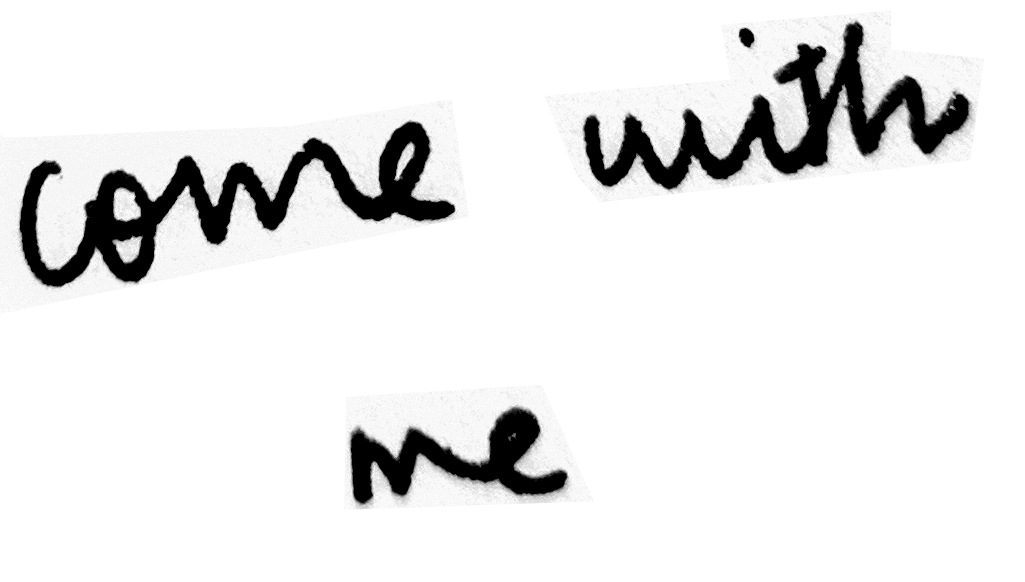 come with
me